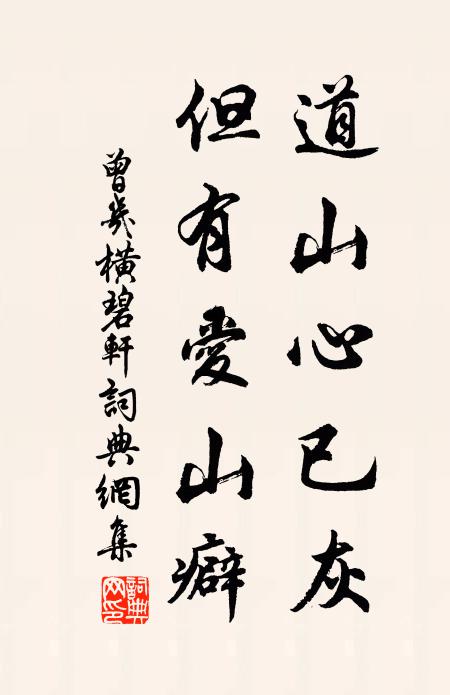 道山心已灰
但有愛山癖
曾幾橫碧軒詞典網集
詞典網印